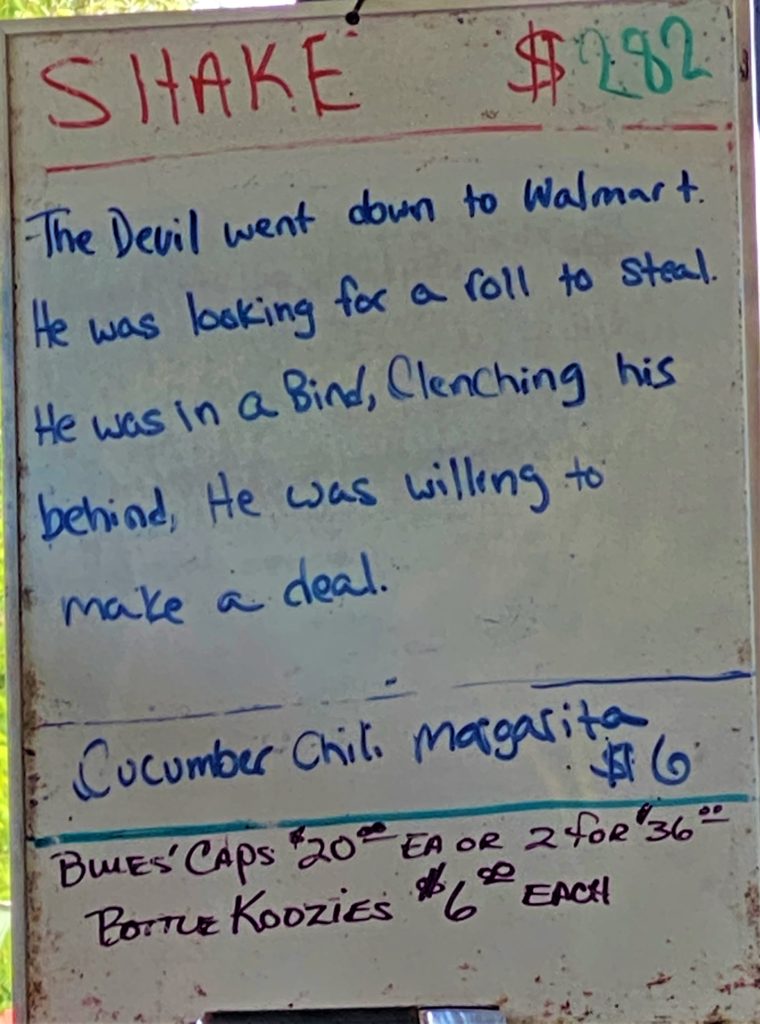 SHAKE $282
The Devil went down to Walmart.
He was looking for a roll to steal.
He was in a Bind, Clenching his
behind, He was willing to
make a deal.
Cucumber Chili Margarita
$6
BLUES' CAPS $20.00 EA OR 2 FOR $36.00
BOTTLE KOOZIES $6.00 EACH